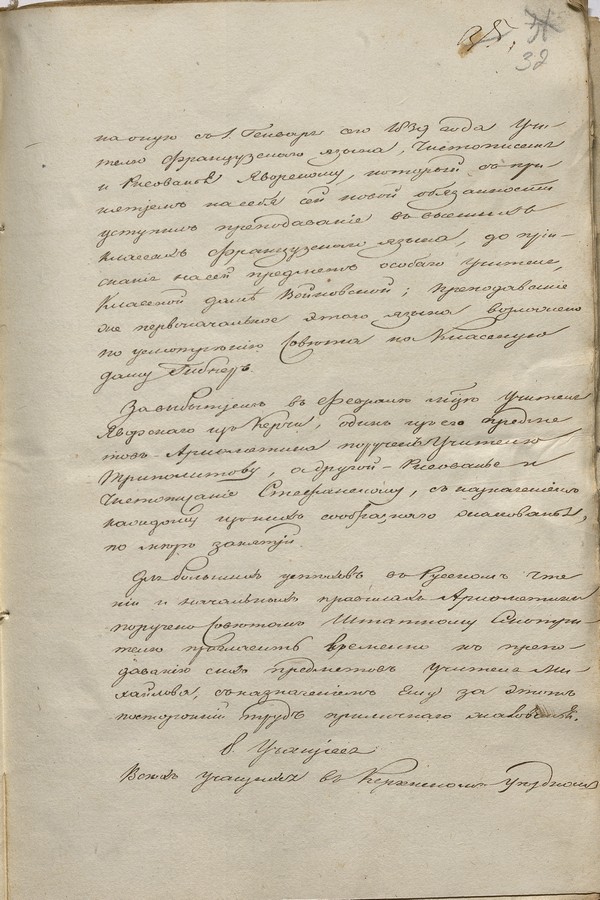 32
на оную съ 1 Генваря сего 1839 года Учи-
телю Французскаго языка, Чистописанія
и Рисованья Яворскому, который съ при-
нятіемъ на себя сей новой обязанности
уступилъ преподаваніе въ высшихъ
классахъ Французскаго языка, до пріи-
сканія на сей предметъ особаго Учителя,
Классной дамѣ Войновской; преподаваніе
же первоначальное этого языка возложено
по усмотрѣнію Совѣта на Классную
даму Гибнеръ.
За выбытіемъ въ Февралѣ м-цѣ Учителя
Яворскаго изъ Керчи, одинъ изъ его предме
товъ - Ариѳметика порученъ Учителю
Триполитову, а другой - Рисованье и
Чистописаніе Стефанскому, съ назначеніемъ
каждому изъ нихъ сообразнаго жалованья,
по мѣрѣ занятій.
Для большихъ успѣховъ въ Русскомъ Чте
ніи и начальныхъ правилахъ Ариѳметики
поручено Совѣтомъ Штатному Смотри-
телю пригласить временно къ препо-
даванію сихъ предметовъ Учителя Ми-
хайлова, съ назначеніемъ Ему за этотъ
посторонній трудъ приличнаго жалованья.
в. Учащіеся
Всѣхъ учащихся въ Керченскомъ Уѣздномъ